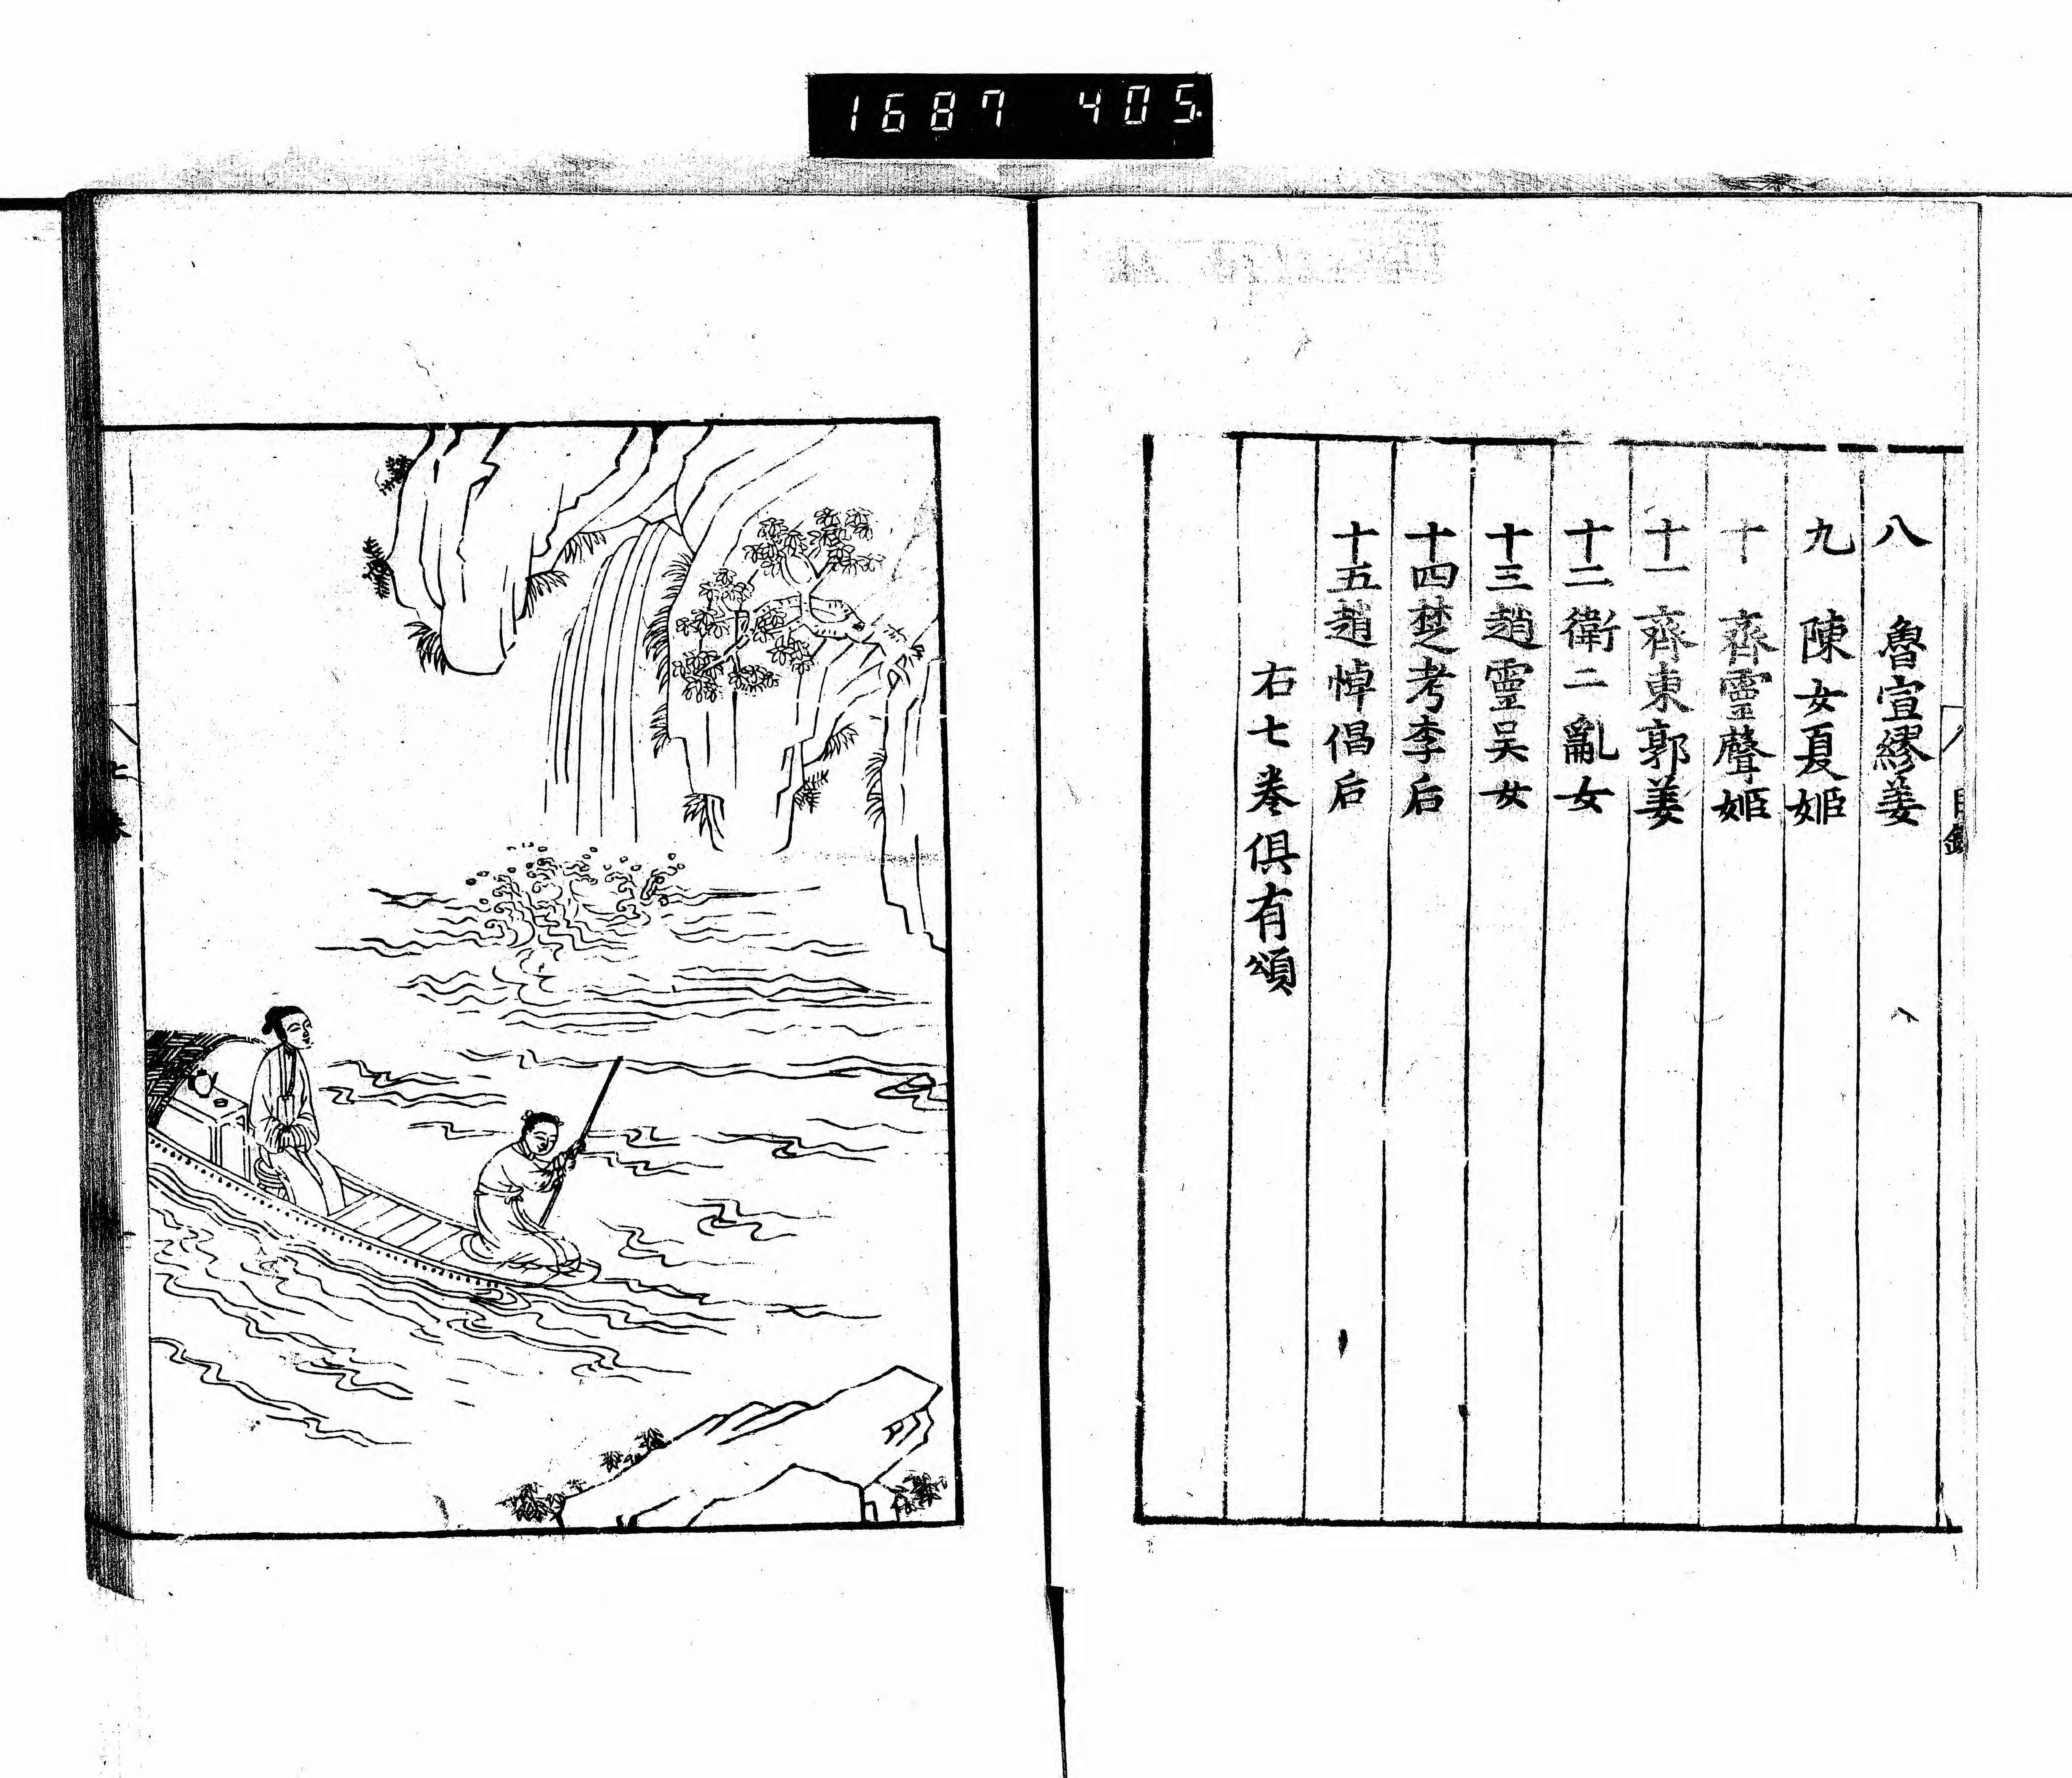 1687 405
八 魯宣繆姜
九 陳女夏姬
十 齊靈聲姬
十一 齊東郭姜
十二衛二亂女
十三趙靈吴女
十四楚考李后
十五趙悼倡后
右七卷俱有頌